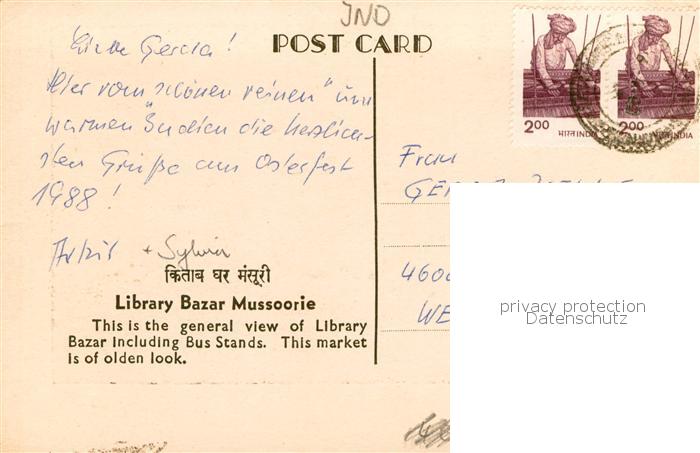 IND
POST CARD
2.00 भारत INDIA
2.00 भारत INDIA
Liebe Gerda!
Hier vom schönen "reinen" und
warmen Indien die herzlich-
sten Grüße zum Osterfest
1988!
+ Sylvia
Frau
किताब घर मंसूरी
Library Bazar Mussoorie
This is the general view of Library
Bazar including Bus Stands. This market
is of olden look.
privacy protection
Datenschutz